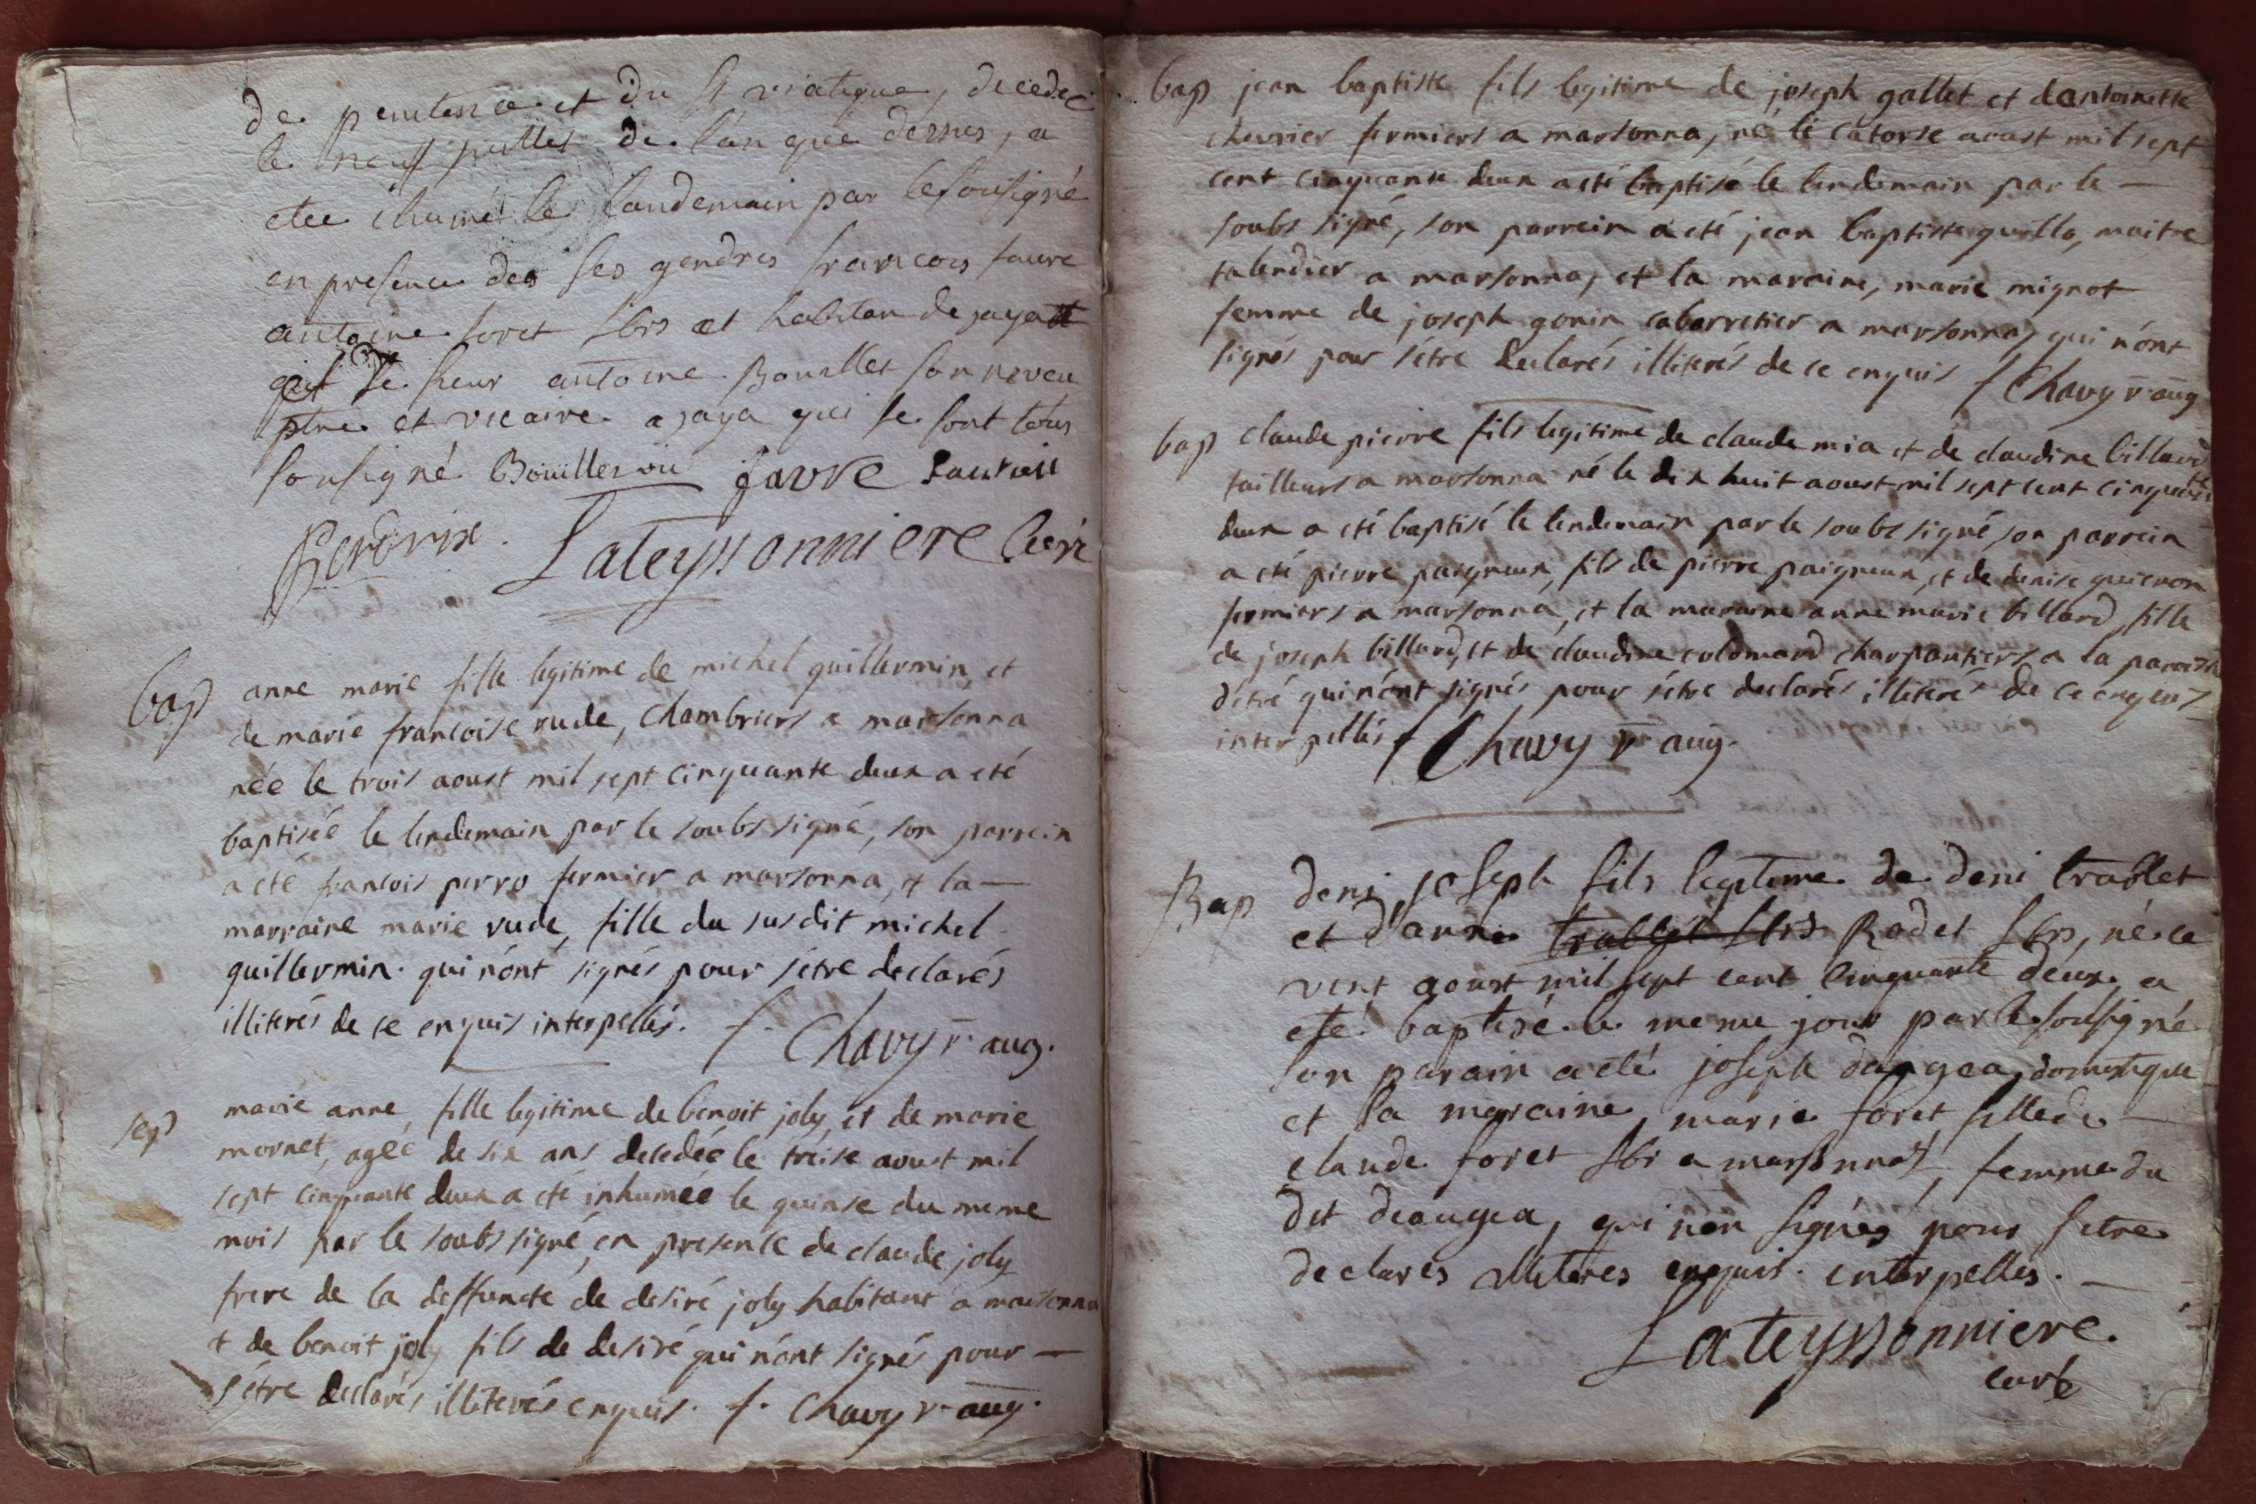 de penitence et du st viatique, decedé
le neuf juillet de l'an que dessus, a
etee inhumé le landemain par le sousigné
en presence des ses gendres francois favre
antoine foret lbrs et habitan de jaya et
et le sieur antoine Bouillet son neveu
ptre et vicaire a jaya qui se sont tous
sousigné Bouillet vic favre
Perdrix. Lateyssonniere Curé
bap anne marie fille legitime de michel guillermin, et
de marie francoise rude, chambriers a marsonna
née le trois aoust mil sept cinquante deux a eté
baptisée le lendemain par le soubs signé, son parrein
a eté francois perro fermier a marsonna, et la
marraine marie rude, fille du susdit michel
guillermin. qui n'ont signés pour s'etre declarés
illiterés de ce enquis interpellés. f. Chavy r. aug.
sep marie anne, fille legitime de benoit joly, et de marie
mornet, agée de six ans decedée le treise aoust mil
sept cinquante deux a eté inhumee le quinse du meme
mois par le soubs signé, en presence de claude joly
frere de la deffuncte de desiré joly habitant a marsonna
et de benoit joly fils de desiré qui n'ont signés pour
s'etre declarés illiterés enquis. f. Chavy r. aug.
bap jean baptiste fils legitime de joseph gallet et dantoinette
chevrier fermiers a marsonna, né le catorse aoust mil sept
cent cinquante deux a eté baptisé le lendemain par le
soubs signé, son parrein a eté jean baptiste maitre
talendier a marsonna, et la maraine, marie mignot
femme de joseph gonin cabarretier a marsonna, qui n'ont
signés pour s'etre declarés illiterés de ce enquis f Chavy r. aug
bap claude pierre fils legitime de claude mia et de claudine billard
tailleurs a marsonna né le dix huit aoust mil sept cent cinquante
deux a eté baptisé le lendemain par le soubs signé son parrein
a eté pierre paigneux, fils de pierre paigneux, et de denise guienon
fermiers a marsonna, et la maraine anne marie billard, fille
de joseph billard, et de claudine colomard charpantiers a la paroisse
d'etré qui n'ont signés pour s'etre declarés illiterés de ce enquis
interpellés f Chavy r. aug.
Bap deni, joseph fils legitime de deni trablet
et d'anne Radet lbrs, né le
vint aoust mil sept cent cinquante deux a
eté baptisé le meme jour par le sousigné
son parain a eté joseph dangea, domestique
et la maraine marie foret fille de
claude foret lbr a marsonnas, femme du
dit deaugea, qui non signés pour setre
declares illiteres enquis. interpelles.
Lateyssonniere.
curé